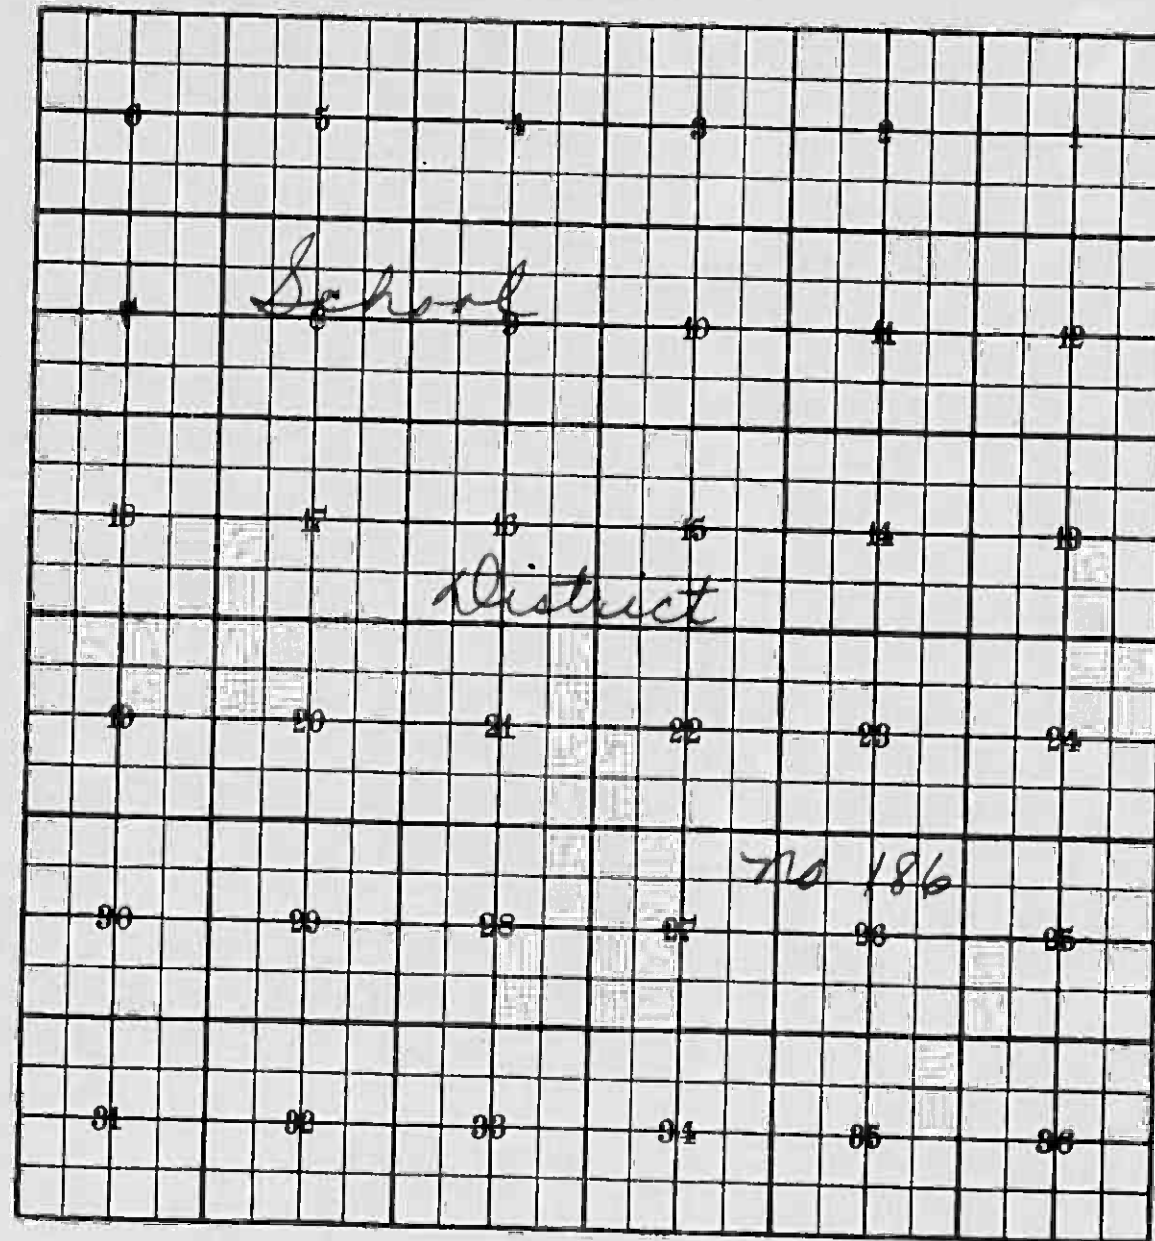 6 5 4 3 2 1
School
7 8 9 10 11 12
18 17 16 15 14 13
District
19 20 21 22 23 24
No 186
30 29 28 27 26 25
31 32 33 34 35 36